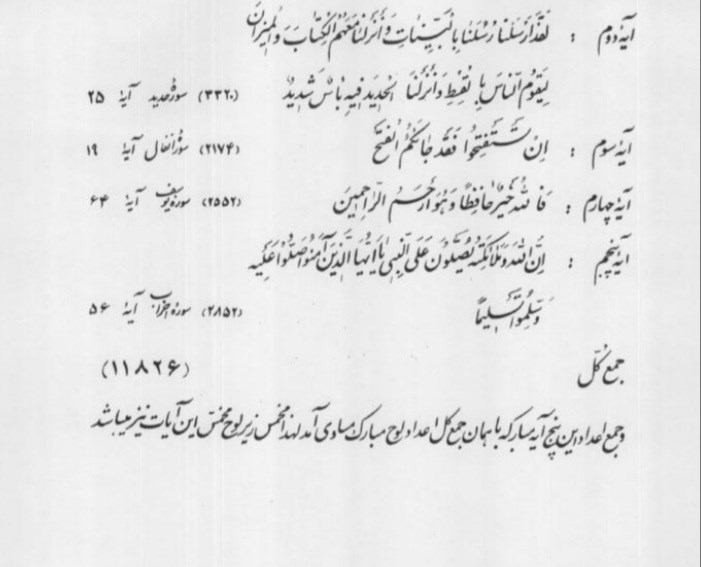 آیه دوم : لَقَد اَرسَلنا رُسُلَنا بِالبَیِّناتِ وَاَنزَلنا مَعَهُمُ الکِتابَ وَالمیزانَ
لِیَقومَ النّاسَ بِالقِسطِ وَاَنزَلنَا الحَدیدَ فیهِ بَأسٌ شَدیدٌ (۳۳۲۰) سورهٔ حدید آیهٔ ۲۵
آیه سوم : اِن تَستَفتِحُوا فَقَد جائَکُمُ الفَتح (۲۱۷۴) سورهٔ انفال آیهٔ ۱۹
آیه چهارم : فَاللهُ خَیرٌ حافِظاً وَهُوَ اَرحَمُ الرّاحِمینَ (۲۵۵۲) سوره یوسف آیهٔ ۶۴
آیه پنجم : اِنَّ اللهَ وَمَلائِکَتَهُ یُصَلّونَ عَلَی النَّبِی یا اَیُّهَا الَّذینَ آمَنُوا صَلّوا عَلَیهِ
وَسَلِّمُوا تَسلیماً (۲۸۵۲) سوره احزاب آیهٔ ۵۶
جمع کل (۱۱۸۲۶)
و جمع اعداد این پنج آیه مبارکه با همان جمع کل اعداد لوح مبارک مساوی آمد لهذا مخمس زیر لوح مخمس این آیات نیز میباشد